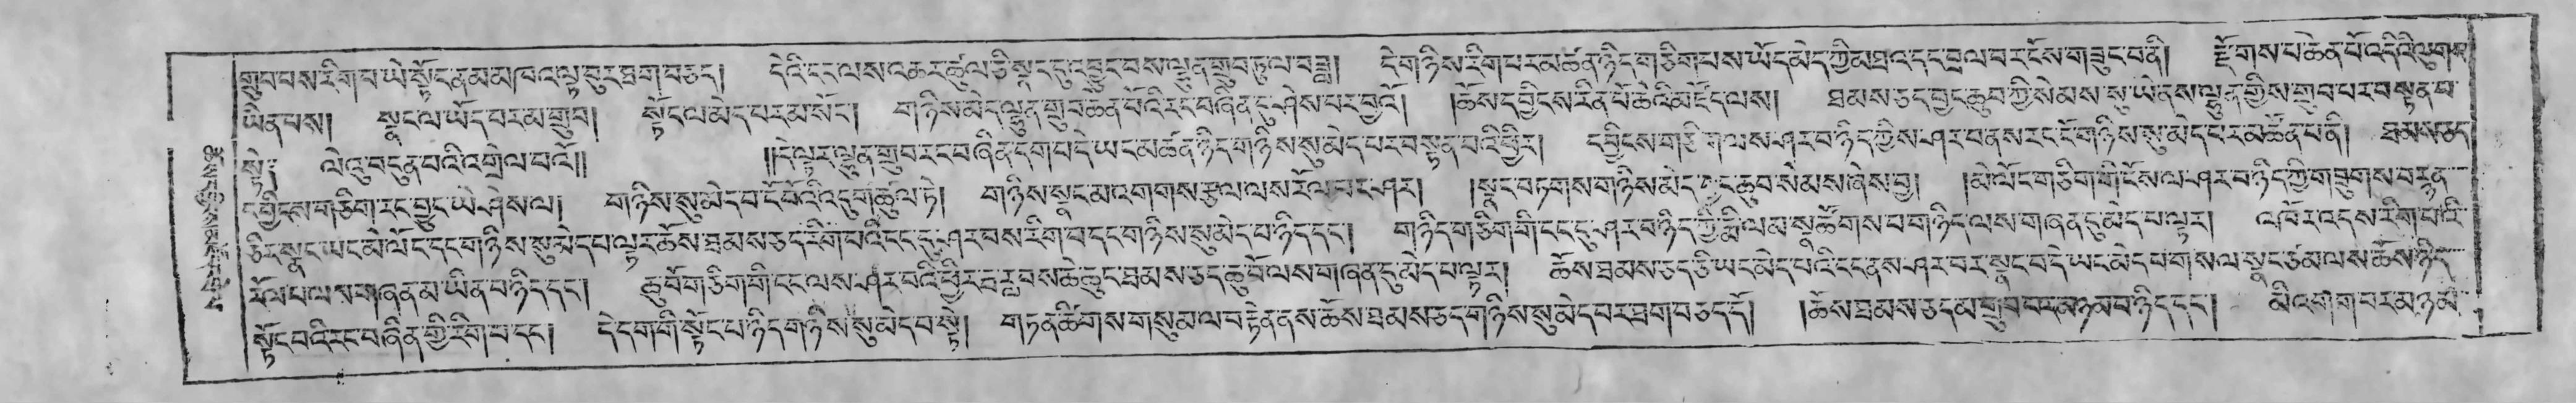 གྲུབ་པས་རིག་པ་ཡེ་སྟོང་ནམ་མཁའ་ལྟ་བུར་ཐག་བཅད། དེའི་ངང་ལས་འཆར་ཚུལ་ཅི་སྣང་དུ་འབྱུང་བས་ལྷུན་གྲུབ་ཏུ་ལ་བཟླ། དེ་གཉིས་རིག་པར་མཚན་ཉིད་གཅིག་པས་ཡོད་མེད་ཀྱི་མཐའ་དང་བྲལ་བར་ངོས་གཟུང་བ་ནི། རྫོགས་པ་ཆེན་པོ་འདིའི་ལུགས་
ཡིན་པས། སྣང་ལ་ཡོད་པར་མ་གྲུབ། སྟོང་ལ་མེད་པར་མ་སོང་། གཉིས་མེད་ལྷུན་གྲུབ་ཆེན་པོའི་རང་བཞིན་དུ་ཤེས་པར་བྱའོ། །ཆོས་དབྱིངས་རིན་པོ་ཆེའི་མཛོད་ལས། ཐམས་ཅད་བྱང་ཆུབ་ཀྱི་སེམས་སུ་ཡེ་ནས་ལྷུན་གྱིས་གྲུབ་པར་བསྟན་པ་
སྟེ༔ ལེའུ་བདུན་པའི་འགྲེལ་པའོ།། །།དེ་ལྟར་ལྷུན་གྲུབ་རང་བཞིན་དག་པ་དེ་ཡང་མཚན་ཉིད་གཉིས་སུ་མེད་པར་བསྟན་པའི་ཕྱིར། དབྱིངས་གཅིག་ལས་ཤར་བ་ཉིད་ཀྱིས་ཤར་བ་ནས་རང་ངོ་གཉིས་སུ་མེད་པར་མཚོན་པ་ནི། ཐམས་ཅད་
དབྱིངས་གཅིག་རང་བྱུང་ཡེ་ཤེས་ལ། གཉིས་སུ་མེད་པ་ངོ་བོའི་འདུག་ཚུལ་ཏེ། གཉིས་སྣང་མ་འགགས་རྩལ་ལས་རོལ་པར་ཤར། །སྣང་བཏགས་གཉིས་མེད་བྱང་ཆུབ་སེམས་ཞེས་བྱ། །མེ་ལོང་གཅིག་གི་ངོས་ལ་ཤར་བ་ཉིད་ཀྱི་གཟུགས་བརྙན་
ཅིར་སྣང་ཡང་མེ་ལོང་དང་གཉིས་སུ་མེད་པ་ལྟར་ཆོས་ཐམས་ཅད་རིག་པའི་ངང་དུ་ཤར་བས་རིག་པ་དང་གཉིས་སུ་མེད་པ་ཉིད་དང་། གཉིད་གཅིག་གི་ངང་དུ་ཤར་བ་ཉིད་ཀྱི་རྨི་ལམ་སྣ་ཚོགས་པ་གཉིད་ལས་གཞན་དུ་མེད་པ་ལྟར། འཁོར་འདས་རིག་པའི་
རོལ་པ་ལས་གཞན་མ་ཡིན་པ་ཉིད་དང་། ཆུ་བོ་གཅིག་གི་ངང་ལས་ཤར་བའི་ཕྱིར་རླབས་ཆེ་ཆུང་ཐམས་ཅད་ཆུ་བོ་ལས་གཞན་དུ་མེད་པ་ལྟར། ཆོས་ཐམས་ཅད་ཅི་ཡང་མེད་པའི་ངང་ནས་ཤར་བར་སྣང་བ་དེ་ཡང་མེད་པ་གསལ་སྣང་ཙམ་ལས་ཆོས་ཉིད་
སྟོང་པའི་རང་བཞིན་གྱི་རིག་པ་དང་། དེ་དག་གི་སྟོང་པ་ཉིད་གཉིས་སུ་མེད་པ་སྟེ། གཏན་ཚིགས་གསུམ་ལ་བརྟེན་ནས་ཆོས་ཐམས་ཅད་གཉིས་སུ་མེད་པར་ཐག་བཅད་དོ། །ཆོས་ཐམས་ཅད་མ་གྲུབ་པར་མཉམ་པ་ཉིད་དང་། མི་འགག་པར་མཉམ་